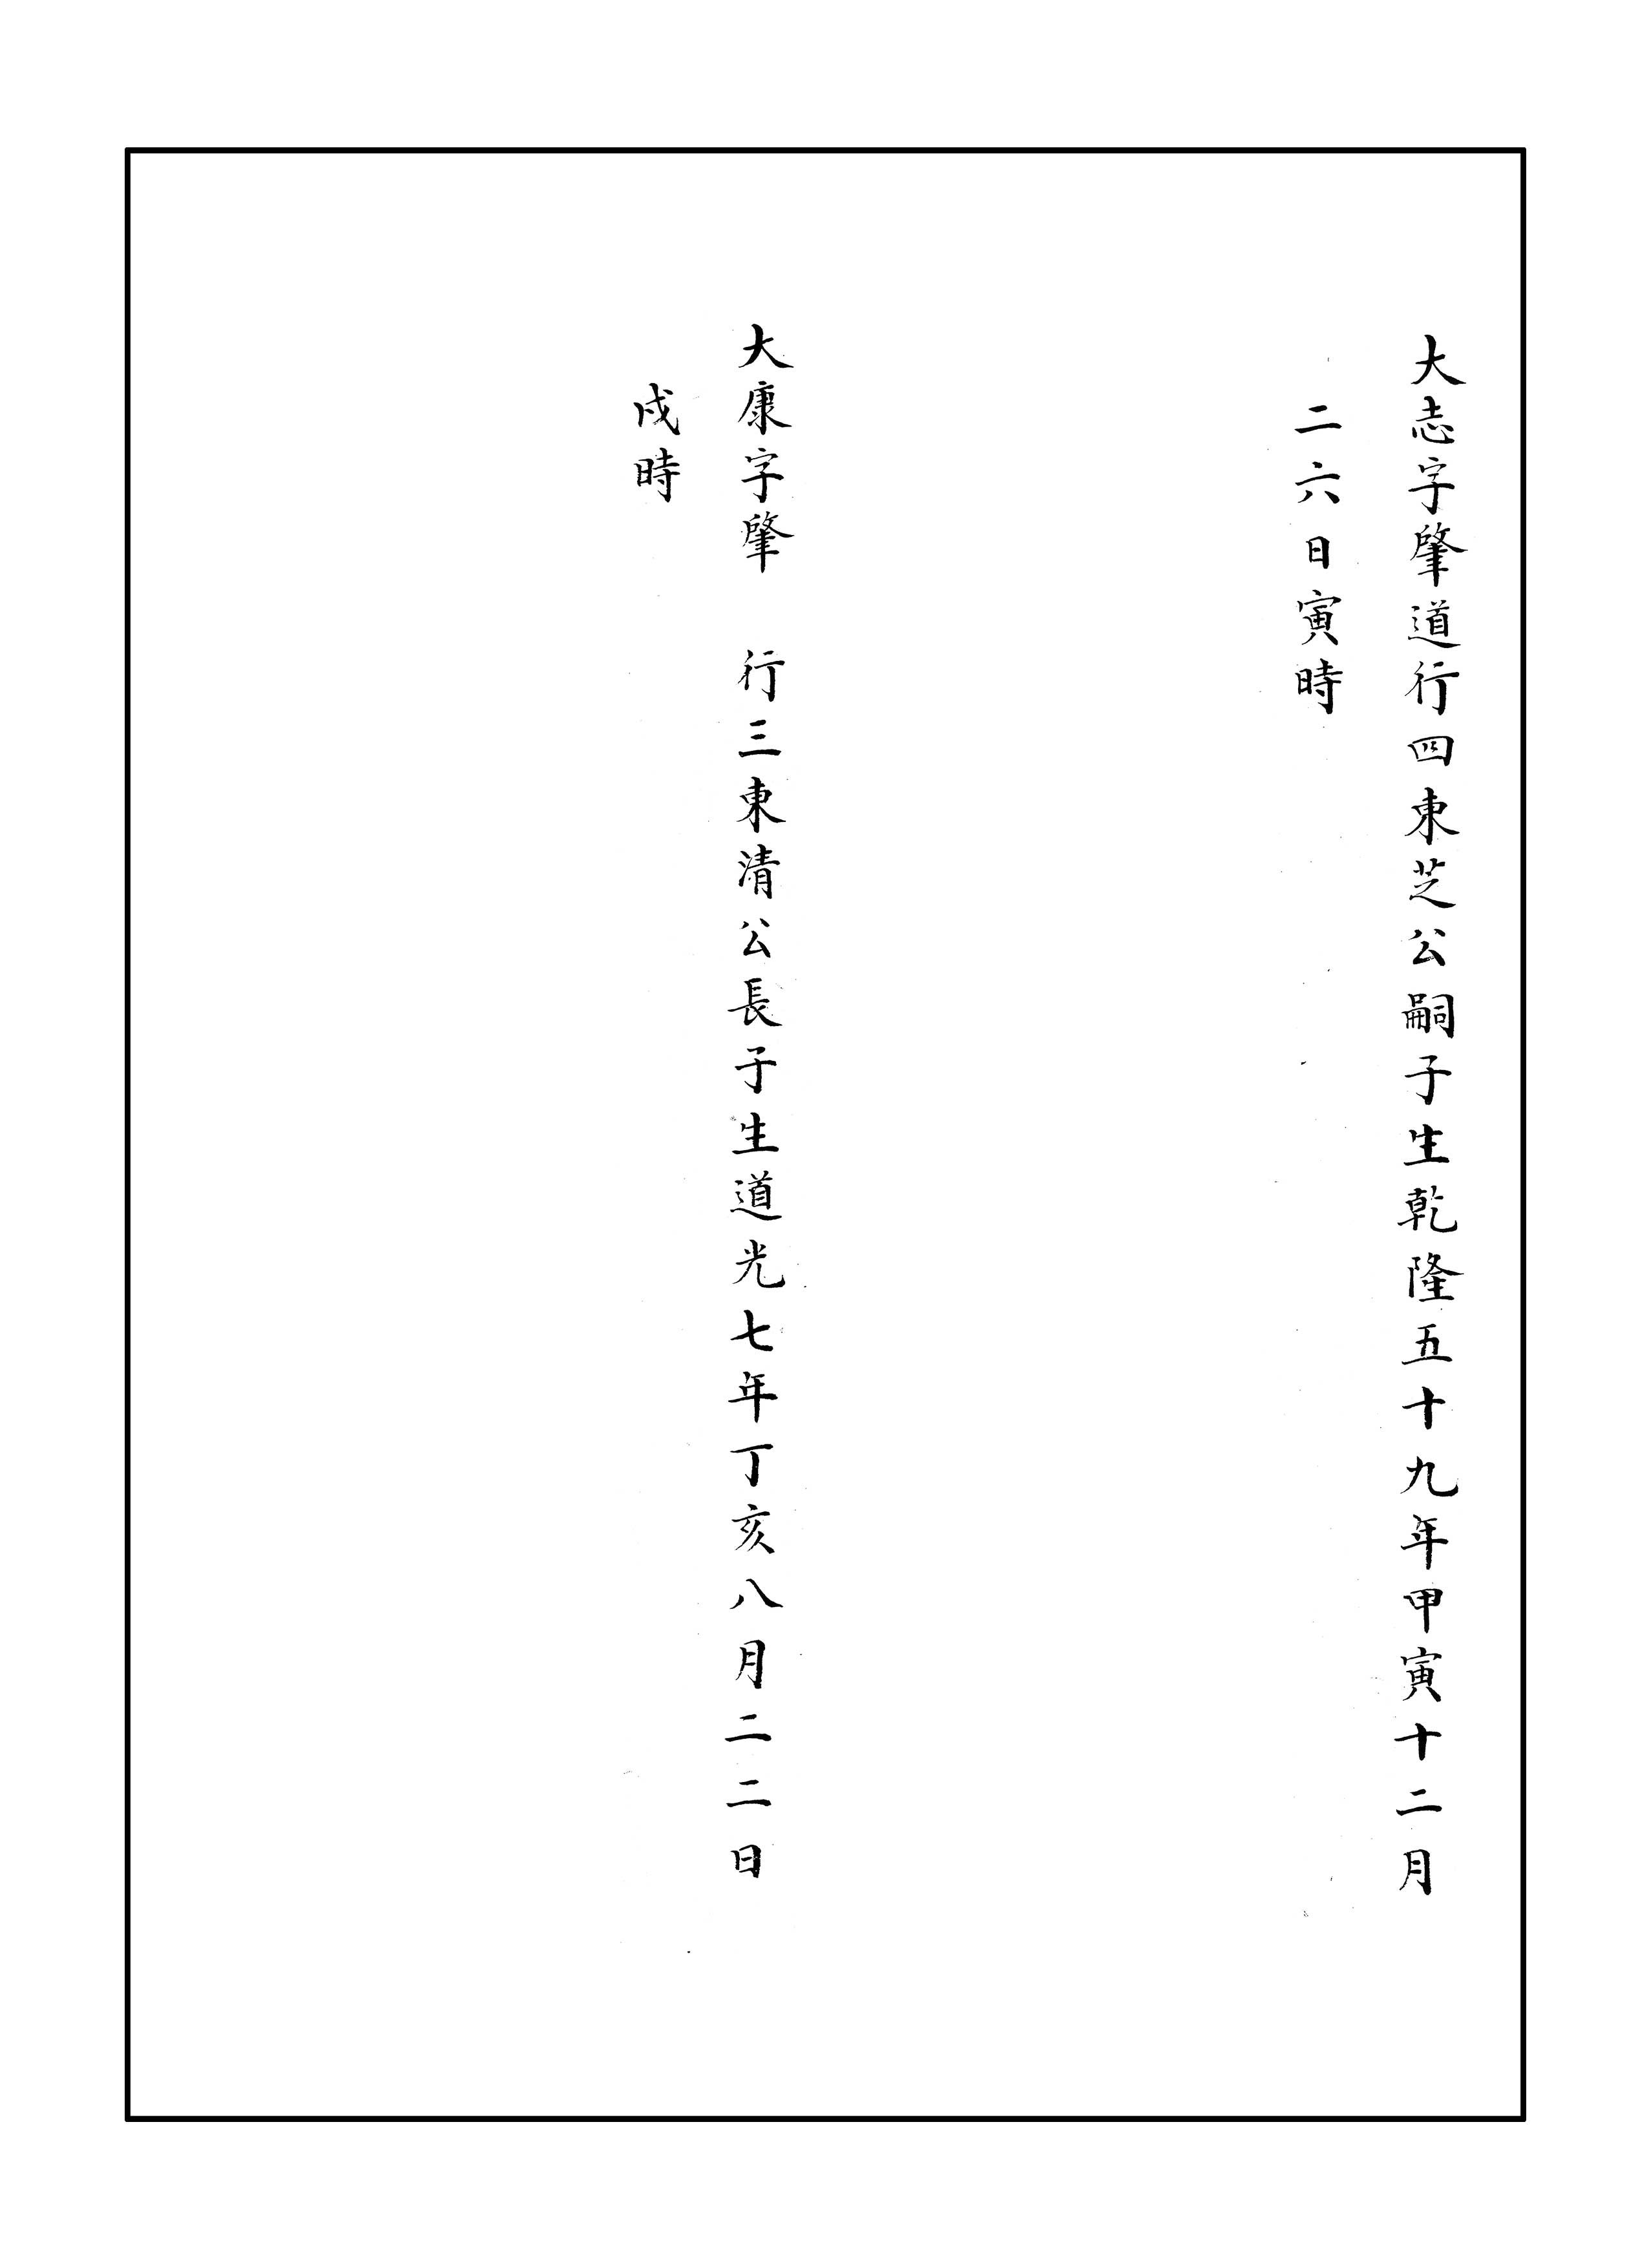 大志字肇道行四東芝公嗣子生乾隆五十九年甲寅十二月
二六日寅時
大康字肇　行三東清公長子生道光七年丁亥八月二二日
戌時